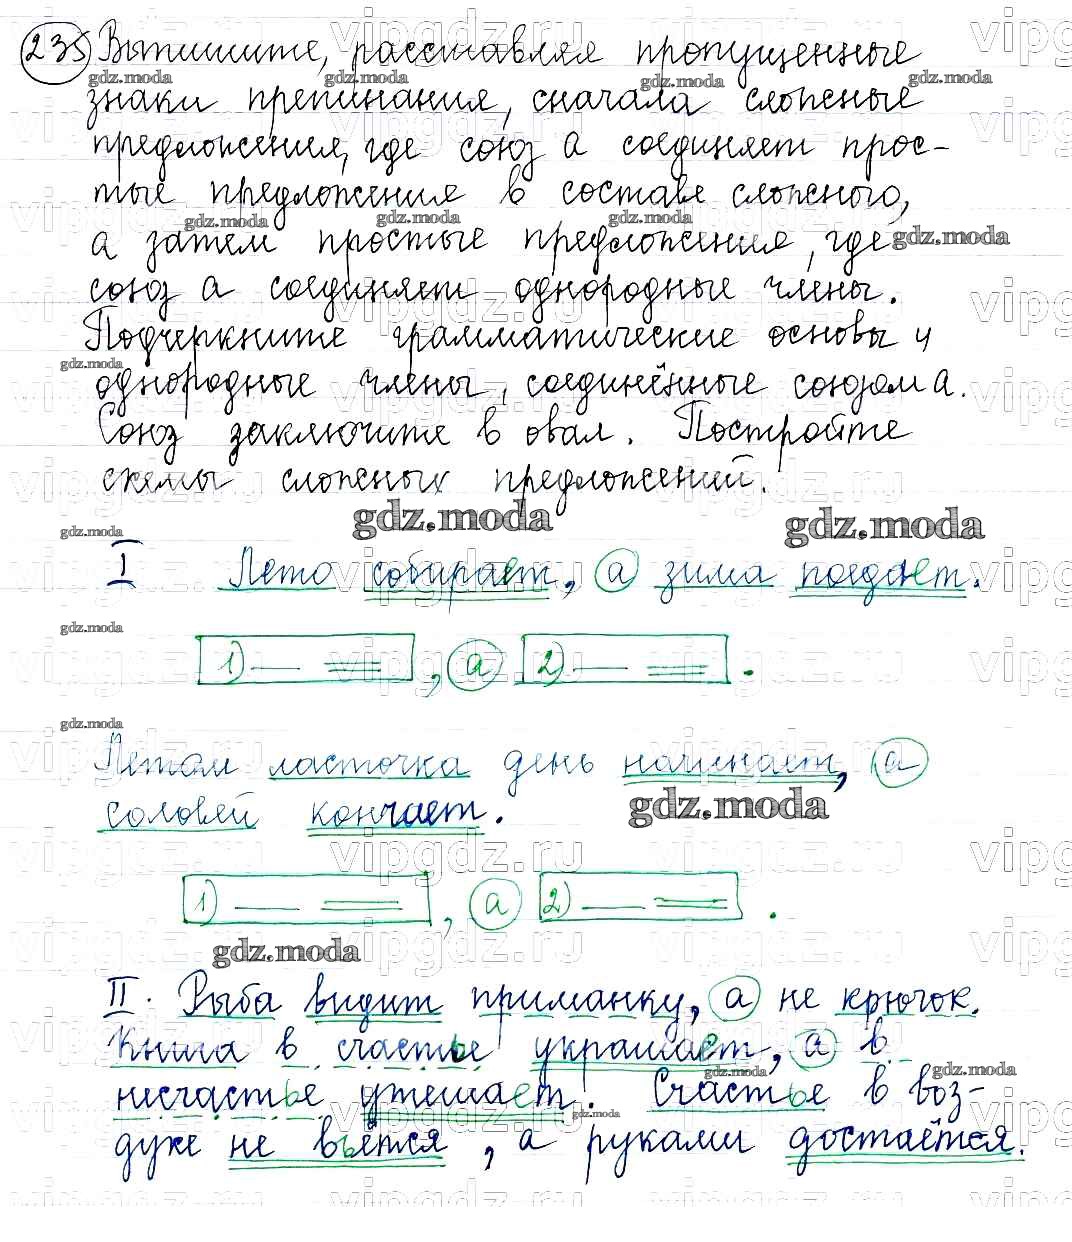 235 Выпишите, расставляя пропущенные
знаки препинания, сначала сложные
предложения, где союз а соединяет прос-
тые предложения в составе сложного,
а затем простые предложения, где
союз а соединяет однородные члены.
Подчеркните грамматические основы и
однородные члены, соединённые союзом а.
Союз заключите в овал. Постройте
схемы сложных предложений.
gdz.moda
I Лето собирает, а зима поедает.
1) , а 2) .
Летом ласточка день начинает, а
соловей кончает.
1) , а 2) .
gdz.moda
II. Рыба видит приманку, а не крючок.
Книга в счастье украшает, а в
несчастье утешает. Счастье в воз-
духе не вьётся, а руками достаётся.
vipgdz.ru